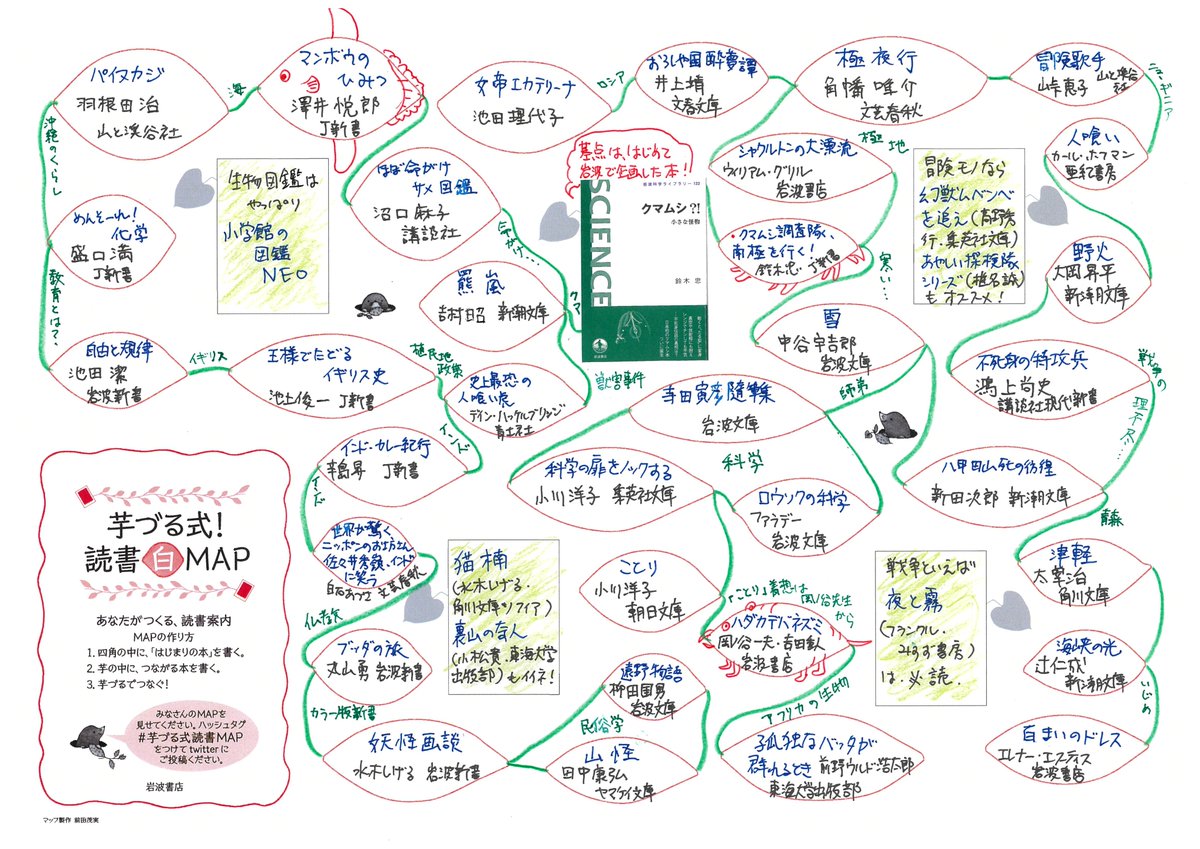 パイヌカジ
羽根田治
山と渓谷社
海
マンボウの
ひみつ
澤井悦郎
J新書
女帝エカテリーナ
池田理代子
ロシア
おろしや国酔夢譚
井上靖
文春文庫
極夜行
角幡唯介
文藝春秋
冒険歌手
峠恵子 山と渓谷社
ニューギニア
人喰い
カール・ホフマン
亜紀書房
沖縄のくらし
生物図鑑は
やっぱり
小学館の
図鑑
NEO
ほぼ命がけ
サメ図鑑
沼口麻子
講談社
命がけ…
基点は、はじめて
岩波で企画した本!
岩波科学ライブラリー 122
SCIENCE
クマムシ?!
小さな怪物
鈴木 忠
岩波書店
シャクルトンの大漂流
ウィリアム・グリル
岩波書店
極地
・クマムシ調査隊、
南極を行く!
鈴木忠 J新書
寒い…
冒険モノなら
幻獣ムベンベ
を追え(高野秀
行・集英社文庫)
あやしい探検隊
シリーズ(椎名誠)
もオススメ!
野火
大岡昇平
新潮文庫
めんそーれ!
化学
盛口満
J新書
教育とは?
羆嵐
吉村昭 新潮文庫
クマ
雪
中谷宇吉郎
岩波文庫
師弟
不死身の特攻兵
鴻上尚史
講談社現代新書
戦争の
理不尽…
自由と規律
池田 潔
岩波新書
イギリス
王様でたどる
イギリス史
池上俊一 J新書
植民地
政策
史上最恐の
人喰い虎
デイン・ハッケルブリッジ
青土社
獣害事件
寺田寅彦随筆集
岩波文庫
科学
インド
インド・カレー紀行
辛島昇 J新書
インド
科学の扉をノックする
小川洋子 集英社文庫
ロウソクの科学
ファラデー
岩波文庫
八甲田山死の彷徨
新田次郎 新潮文庫
青森
芋づる式!
読書㊀MAP
あなたがつくる、読書案内
MAPの作り方
1. 四角の中に、「はじまりの本」を書く。
2. 芋の中に、つながる本を書く。
3. 芋づるでつなぐ!
みなさんのMAPを
見せてください。ハッシュタグ
#芋づる式読書MAP
をつけてtwitterに
ご投稿ください。
岩波書店
マップ製作 前田茂実
世界が驚く、
ニッポンのお坊さん
佐々井秀嶺、インド
に笑う
白石あづさ 文藝春秋
仏教
猫楠
(水木しげる・
角川文庫ソフィア)
裏山の奇人
(小松貴・東海大学
出版部)もイイネ!
ことり
小川洋子
朝日文庫
「ことり」着想は
岡ノ谷先生
から
ハダカデバネズミ
岡ノ谷一夫・吉田重人
岩波書店
戦争といえば
夜と霧
(フランクル・
みすず書房)
は、必読.
津軽
太宰治
角川文庫
海峡の光
辻仁成
新潮文庫
いじめ
百まいのドレス
エレナー・エスティス
岩波書店
ブッダの旅
丸山勇 岩波新書
カラー版新書
妖怪画談
水木しげる 岩波新書
民俗学
遠野物語
柳田国男
岩波文庫
山怪
田中康弘
ヤマケイ文庫
アフリカの生物
孤独なバッタが
群れるとき 前野ウルド浩太郎
東海大学出版部